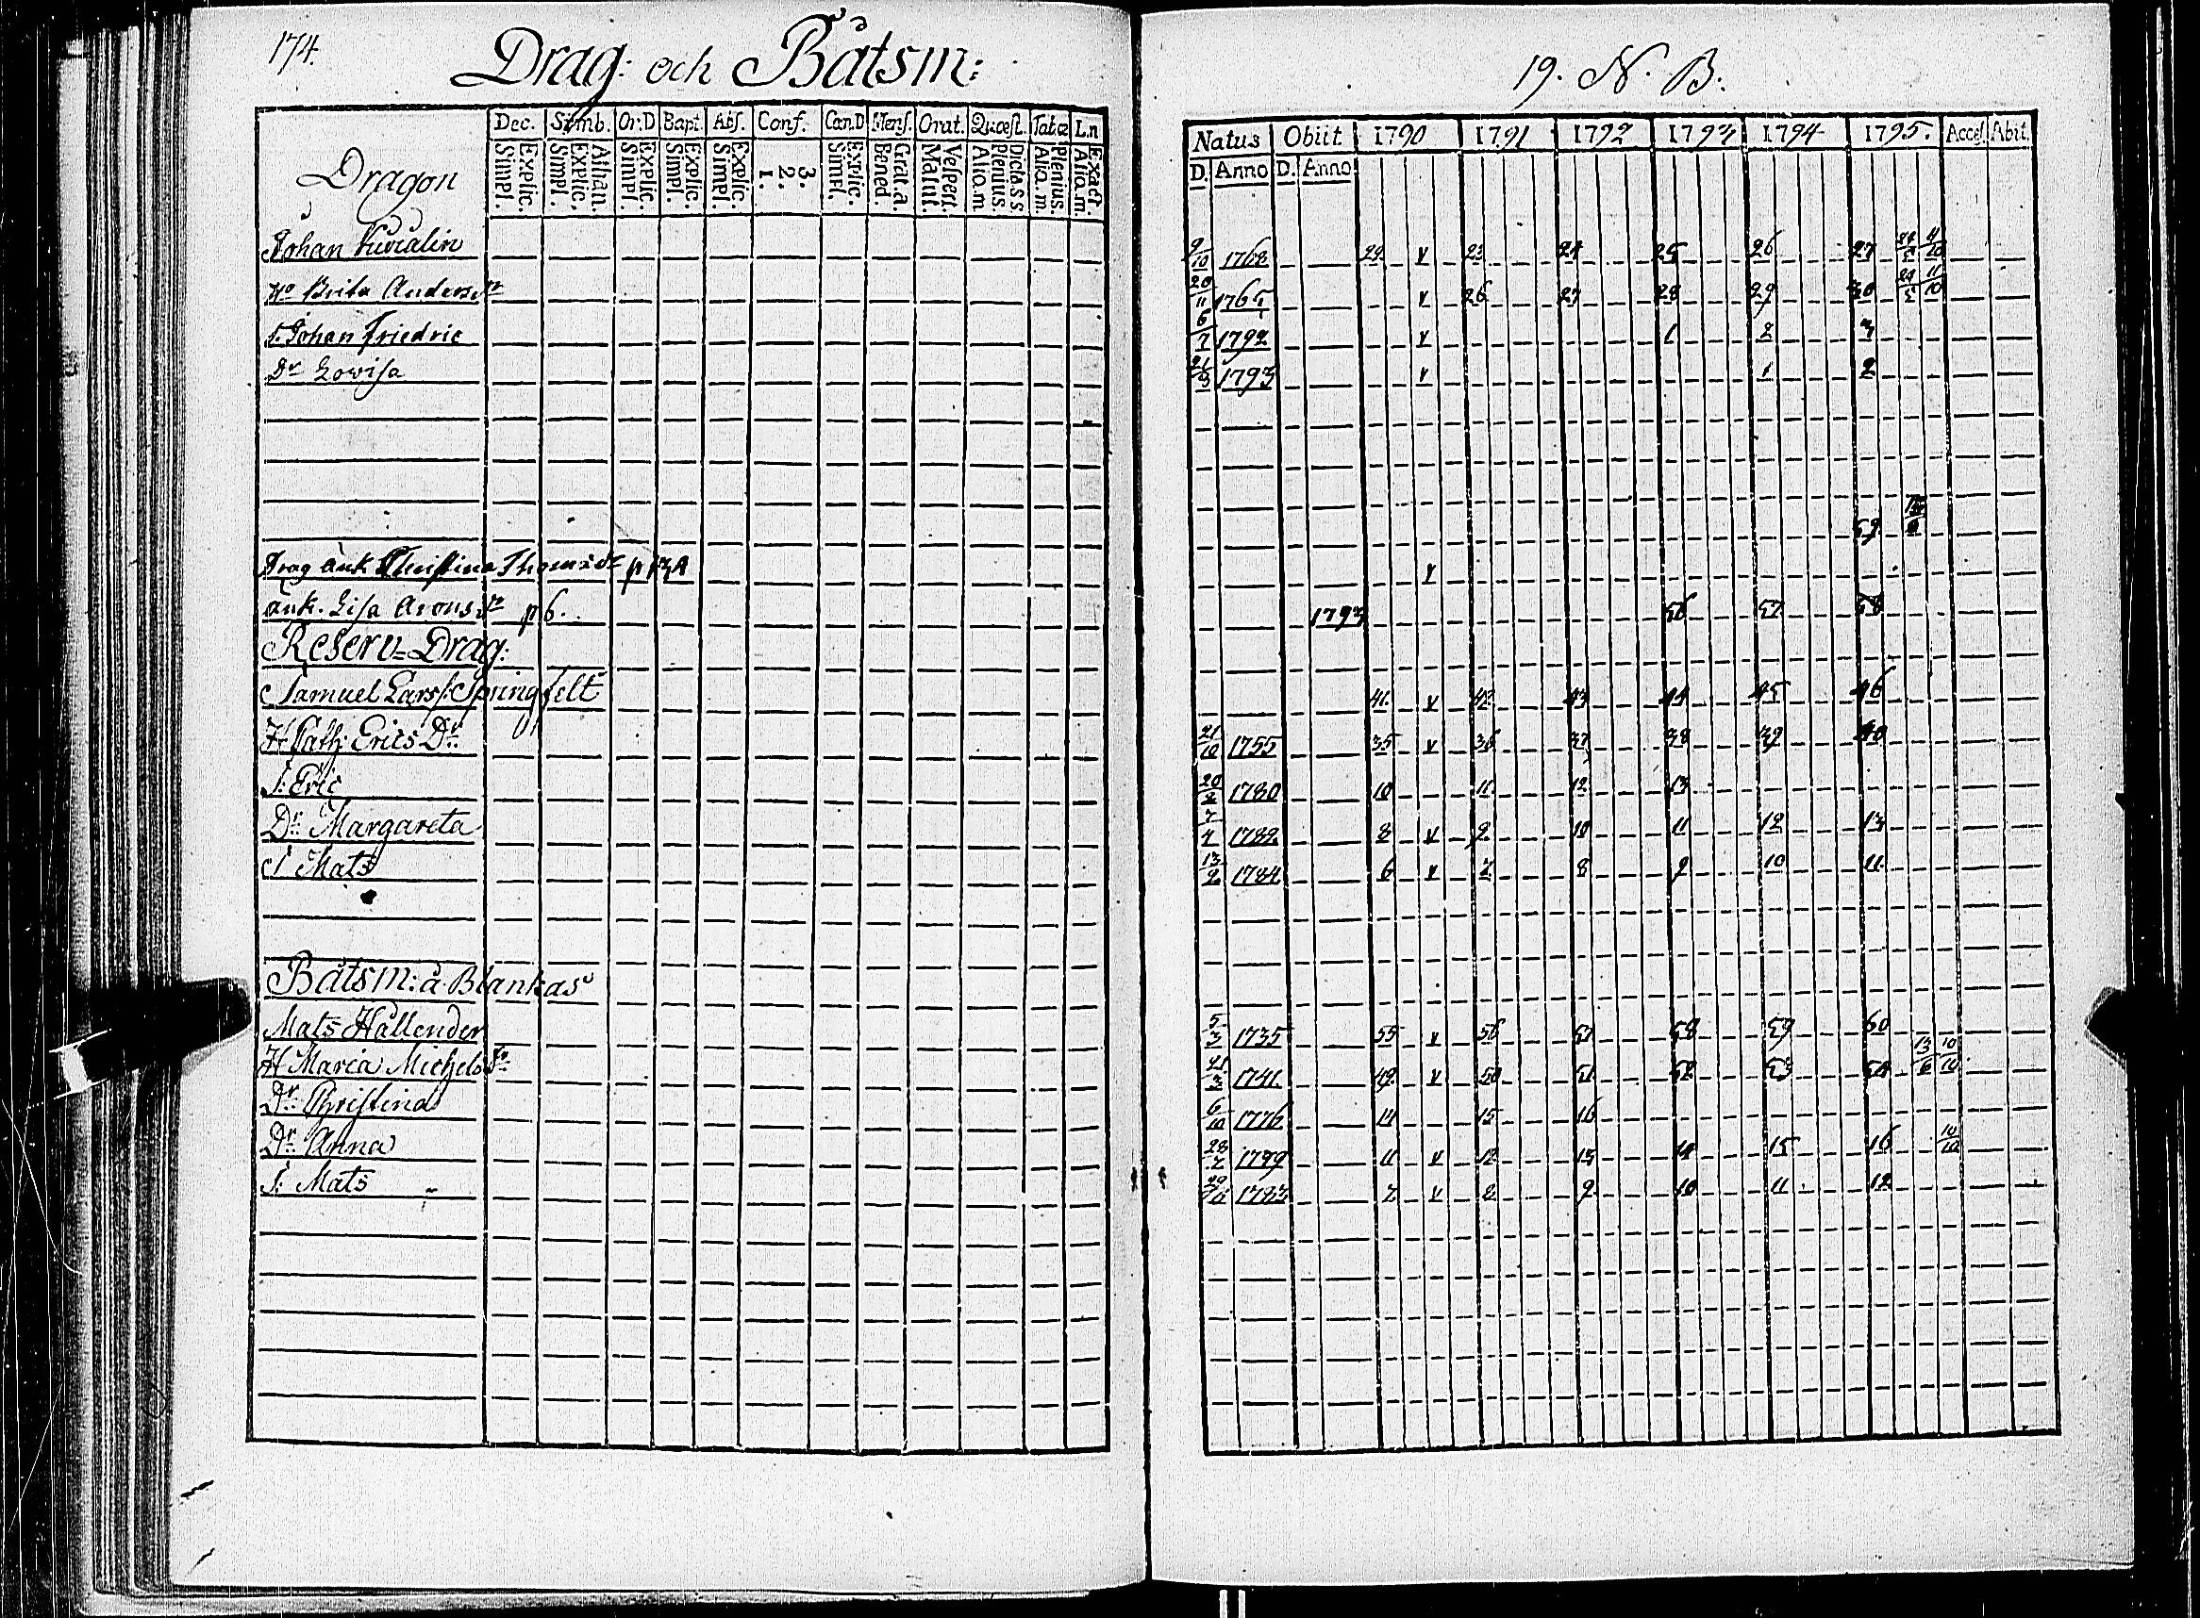 174.
Drag: och Båtsm:
Dec. Simb. Or:D Bapt. Abs. Conf. Cœn.D Mens. Orat. Quæst. Tabæ L.n
Dragon
Explic. Simpl. Athan. Explic. Simpl. Explic. Simpl. Explic. Simpl. Explic. Simpl. 3. 2. 1. Explic. Simpl. Grat.a. Bened. Vespert. Matut. Dicta S.S. plenius. Aliq.m Plenius. Aliq.m. Exact. Aliq.m.
Johan
Ho Brita Andersdr
S. Johan Friedric
Dr Lovisa
Drag änk Christina Thomædr p
änk. Lisa Aronsdr p 6.
Reserv=Drag:
Samuel Larss. Springfelt
H Cath: Erics Dr
S: Eric
Dr Margareta
S Mats
Båtsm: å Blankas
Mats Hällender
H Maria Michels Dr
Dr Christina
Dr Anna
S: Mats
19. N. B.
Natus Obiit 1790 1791 1792 1793 1794 1795. Access. Abit.
D. Anno D. Anno
9/10 1768 v 23 24 25 26 27
20/11 1765 v 26 27 28 29 30
6/7 1792 v 1 2 3
1793 v 1 2
59
v
1793 56 57 58
41 v 42 43 44 45 46
21/10 1755 35 v 36 37 38 39 40
20/2 1780 10 11 12 13
7/4 1782 8 v 9 10 11 12 13
13/2 1784 6 v 7 8 9 10 11
5/3 1735 55 v 56 57 58 59 60
1741 49 v 50 51 52 53 54 13/6 10/10
6/10 1776 14 15 16
1779 11 v 12 13 14 15 16 10/10
1783 7 v 8 9 10 11 12